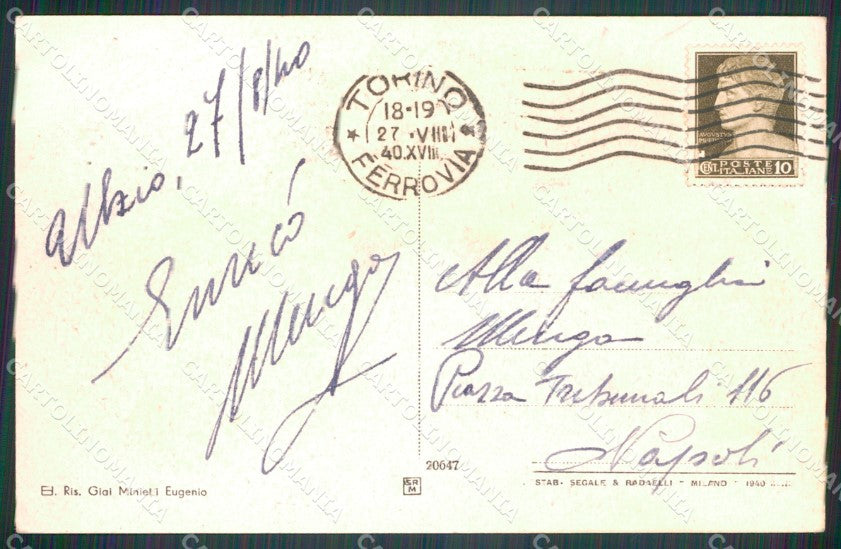 Albzio, 27/8/40
Enricò
Menga
TORINO
18-19
27 ·VIII
40.XVIII
FERROVIA
POSTE
CENT. ITALIANE 10
Alla famiglia
Menga
Piazza Tribunali 116
Napoli
20647
Ed. Ris. Giai Minietti Eugenio
SR
M
STAB. SEGALE & RADAELLI - MILANO - 1940
CARTOLINOMANIA